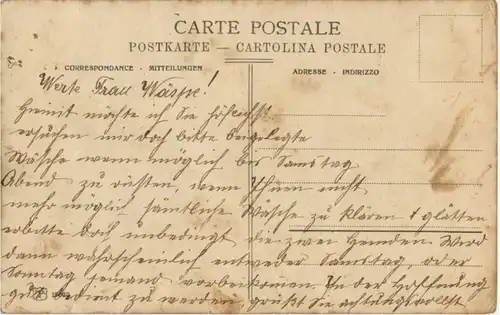 CARTE POSTALE
POSTKARTE — CARTOLINA POSTALE
CORRESPONDANCE - MITTEILUNGEN
ADRESSE - INDIRIZZO
Werte Frau Wäspe!
Hiermit möchte ich Sie höflichst
ersuchen mir doch bitte beigelegte
Wäsche wenn möglich bis Samstag
Abend zu rüsten, wenn Ihnen nicht
mehr möglich sämtliche Wäsche zu klären & glätten
erbitte doch unbedingt die zwei Hemden. Werd
dann wahrscheinlich entweder Samstag, oder
Sonntag jemand vorbeikommen. In der Hoffnung
gut bedient zu werden grüßt Sie achtungsvollst